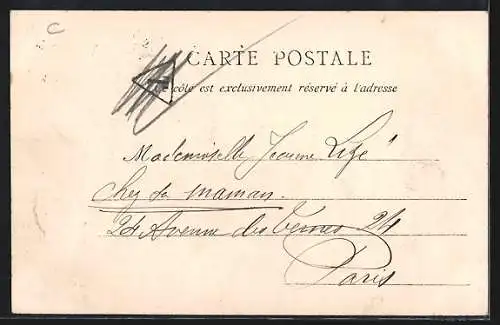 C
CARTE POSTALE
Ce côté est exclusivement réservé à l'adresse
Mademoiselle Jeanne
chez sa maman.
24 Avenue des Ternes 24
Paris